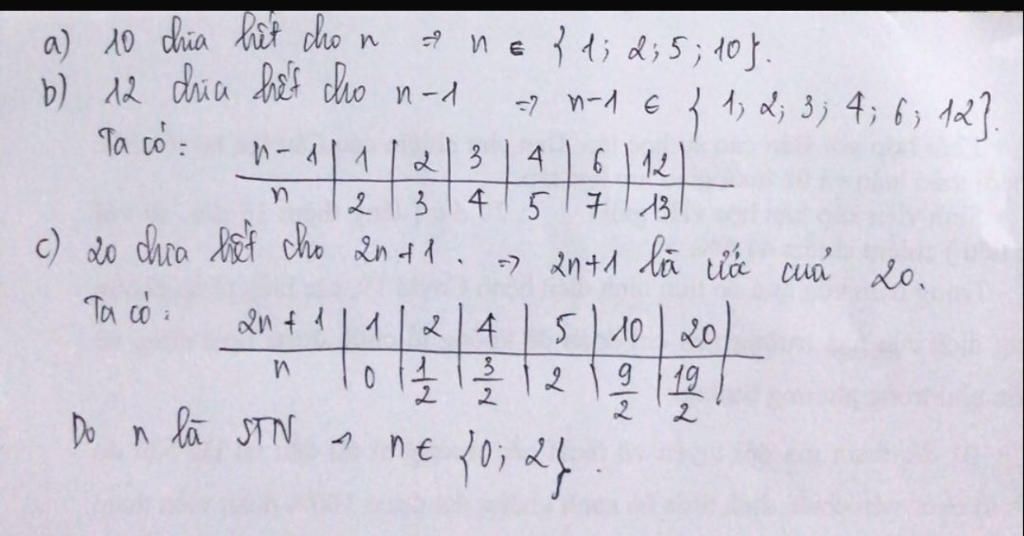 a) 10 chia hết cho n ⇒ n ∈ {1; 2; 5; 10}.
b) 12 chia hết cho n-1 ⇒ n-1 ∈ {1; 2; 3; 4; 6; 12}.
Ta có:
n-1 | 1 | 2 | 3 | 4 | 6 | 12
n | 2 | 3 | 4 | 5 | 7 | 13
c) 20 chia hết cho 2n+1. ⇒ 2n+1 là ước của 20.
Ta có:
2n+1 | 1 | 2 | 4 | 5 | 10 | 20
n | 0 | 1/2 | 3/2 | 2 | 9/2 | 19/2
Do n là STN ⇒ n ∈ {0; 2}.